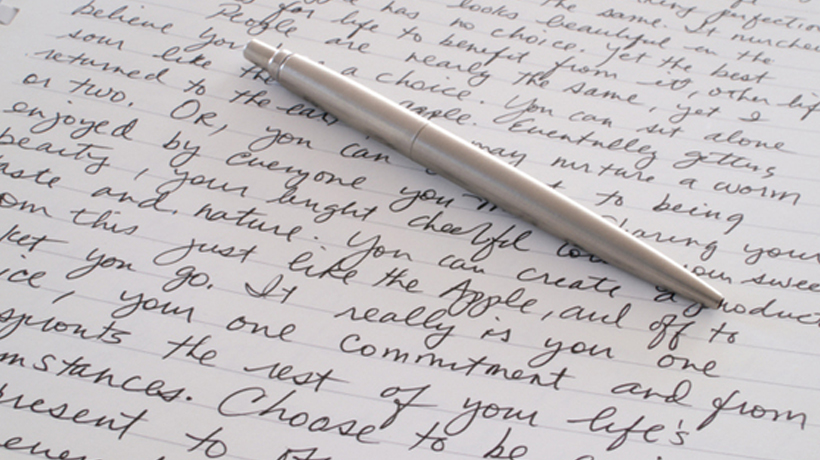 the same. It
looks beautiful in the
has no choice. Yet the best
for life to benefit from it, other lif
People are nearly the same, yet I
believe you a choice. You can sit alone
sour like the apple. Eventually getting
returned to the may nurture a worm
or two. Or, you can to being
enjoyed by everyone you sharing your
beauty, your bright cheerful your sweet
aste and nature. You can create a product
om this just like the Apple, and off to
ket you go. It really is you one
ice, your one commitment and from
sprouts the rest of your life's
mstances. Choose to be
present to